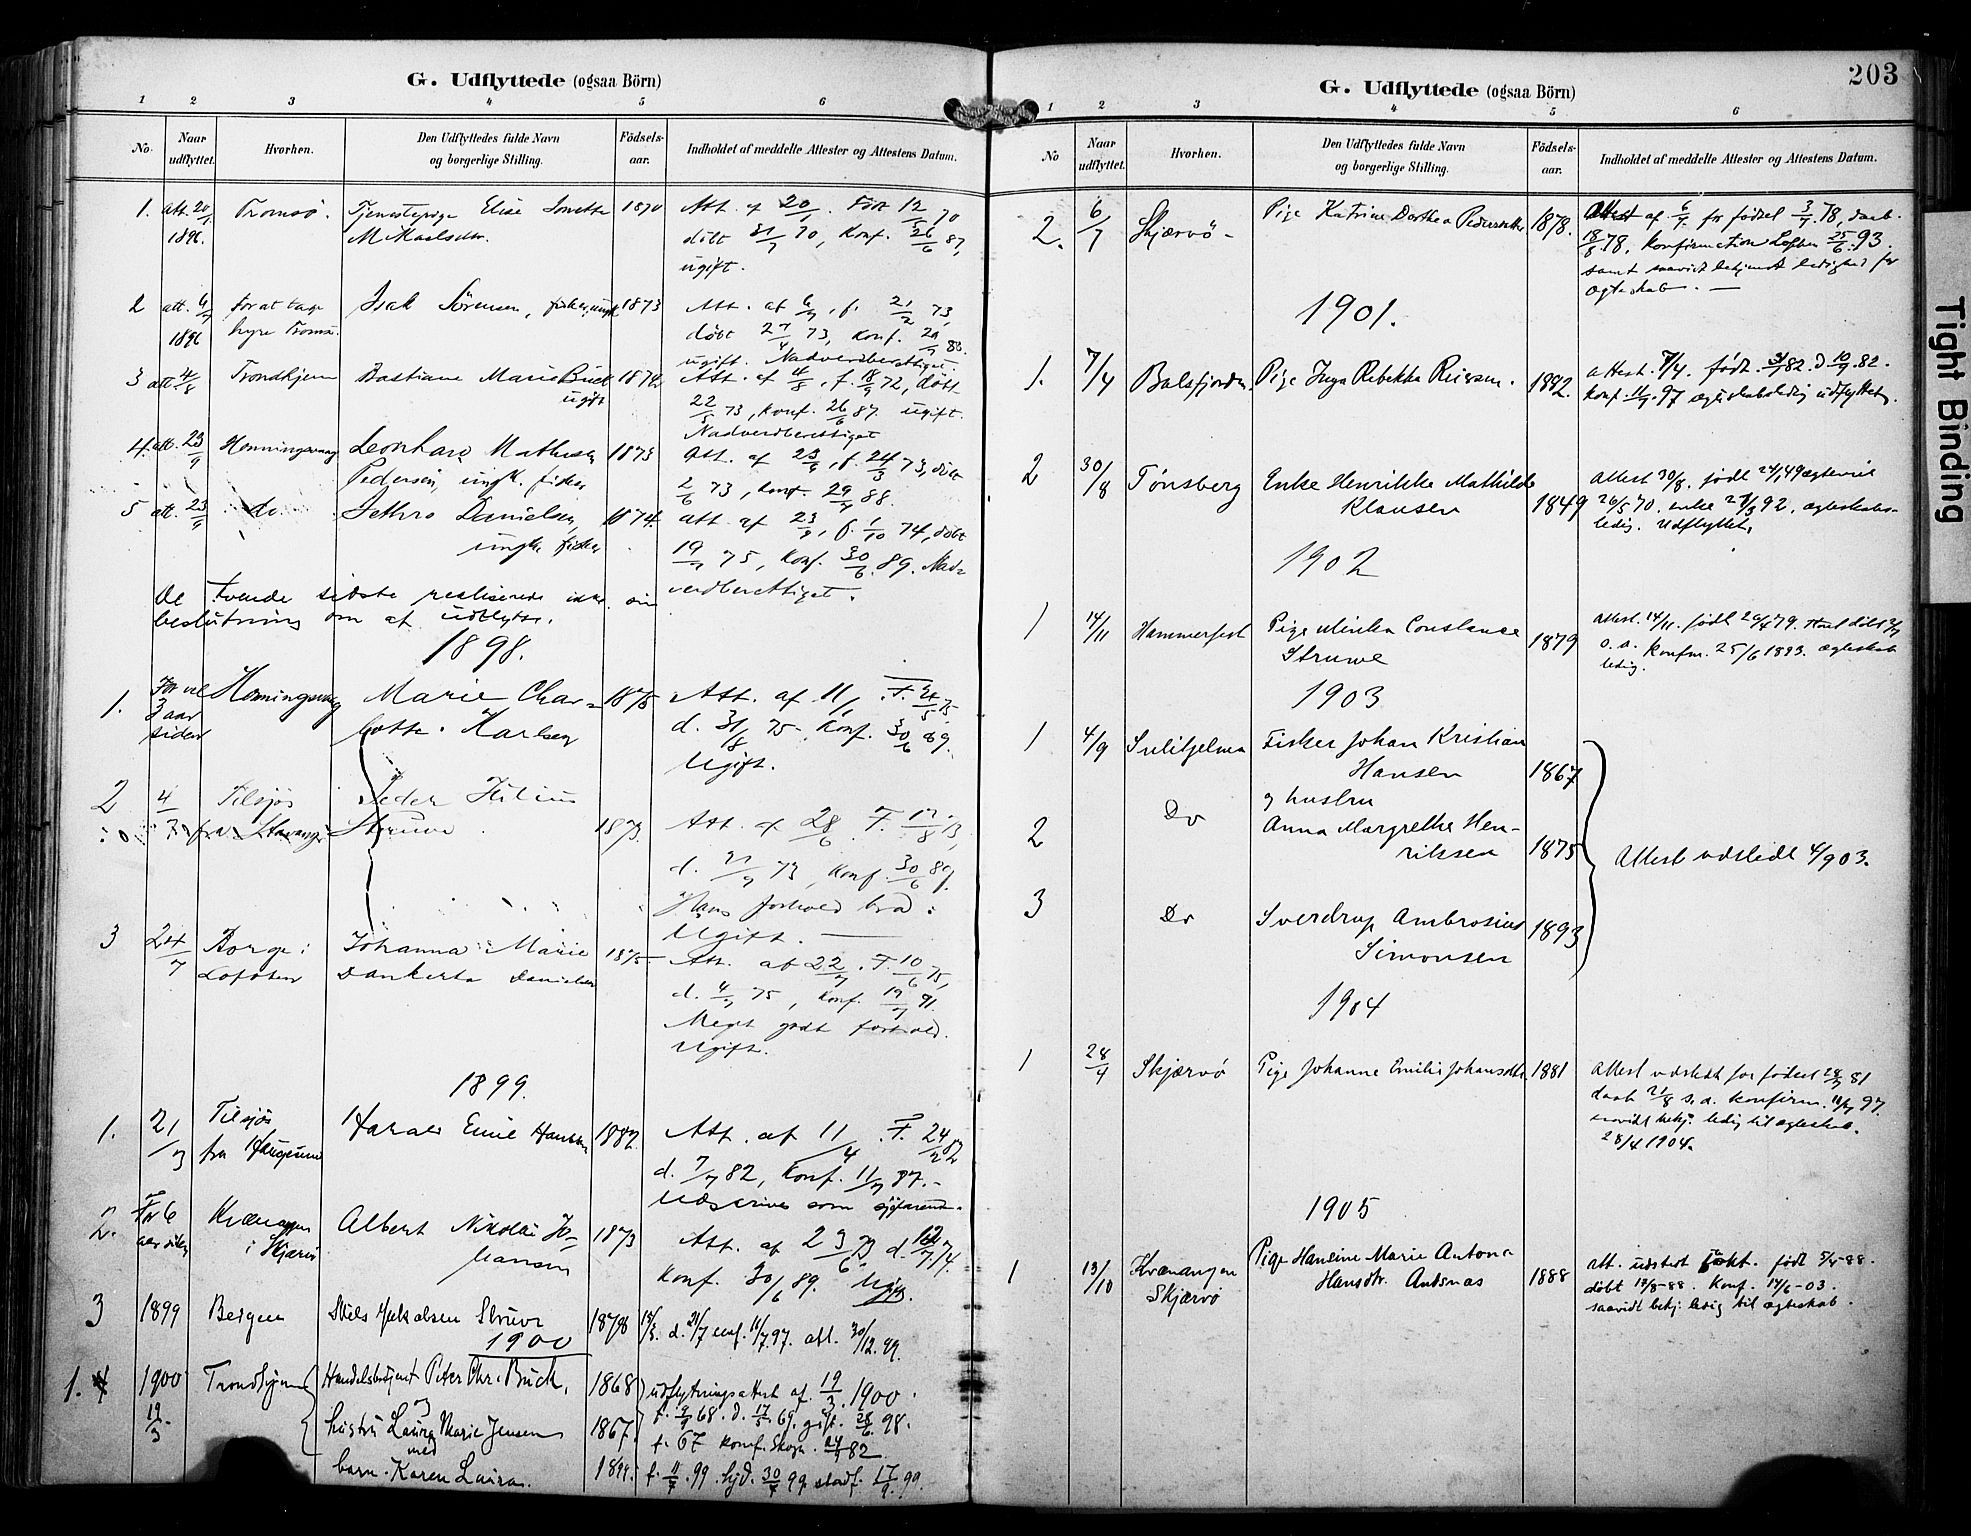 G. Udflyttede (ogsaa Börn)
1 2 3 4 5 6
No. Naar udflyttet. Hvorhen. Den Udflyttedes fulde Navn og borgerlige Stilling. Födsels-aar. Indholdet af meddelte Attester og Attestens Datum.
1. att. 20/1 Tromsö. Tjenestepige Elise 1870 Att. af 20/1. Född 12/ 70
1896. döbt 31/7 70, Konf. 26/6 87,
ugift.
2 att. 6/7 for at tage Isak Sörensen, fisker, ungk. 1873 Att. af 6/7, f. 21/2 73,
1896 hyre Tromsö. döbt 27/4 73, Konf. 29/ 88.
ugift. Nadverdberettiget.
3 att 4/8 Trondhjem Bastiane Marie Buck 1872 Att. af 4/8, f. 18/9 72, döbt
ugift 22/5 73, Konf. 26/6 87. ugift.
Nadverdberettiget
4. att. 23/9 Honningsvaag Leonhard Mathias 1873 Att. af 23/9, f. 24/3 73, döbt
Pedersen, ungk. fisker 2/6 73, Konf. 29/7 88.
5 att. 23/9 do. Jethro Danielsen, 1874. att. af 23/9, f. 1/10 74, döbt
ungk. fisker 19/ 75, Konf. 30/6 89. Nad-
verdberettiget.
De tvende sidste realiserede ikke sin
beslutning om at udflytte.
1898.
1. For vel Honningsvaag Marie Char- 1875 Att. af 11/1. F. 24/5 75
3 aar lotte Karlsen d. 31/8 75. Konf. 30/6 89.
siden Ugift.
2 4/ Tilsjös Peder Julius
7 fra Stavanger Struve 1873. Att. af 28/6 F. 17/8 73,
d. 21/9 73, Konf. 30/6 89.
Hans forhold bra.
Ugift.
3 24/7 Borge i Johanna Marie 1875 Att. af 22/7. F. 10/6 75,
Lofoten Dankerta Danielsen d. 4/7 75, Konf. 19/7 91.
Meget godt forhold.
Ugift.
1899.
1. 21/3 Tilsjös Harald Emil Hansen 1882. Att. af 11/4. F. 24/2 82
fra Haugesund d. 7/7 82, Konf. 11/7 97.
Udskrives som sjöfarende.
2. For 6 Kvænangen Albert Nikolai Jo- 1873 Att. af 23/6 73 d. 12/7 74.
aar siden i Skjærvö hansen Konf. 30/6 89. Ugift.
3 1899 Bergen Niels Jakobsen Struve 1878 18/3. d. 21/7 conf. 11/7 97. att. 30/12. 99.
1900
1. 1900 Trondhjem Handelsbetjent Peter Chr. Buck, 1868 udflytningsattest af 19/3 1900.
19/3 og f. 9/9 68. d. 17/5 69. gift. 28/6 98.
hustru Laura Marie Jensen 1867. f. 67 konf. Skogn. 24/9 82
med
barn. Karen Laura. 1899. f. 11/7 99. hjd. 30/7 99 stadf. 17/9 99.
G. Udflyttede (ogsaa Börn)
203
1 2 3 4 5 6
No Naar udflyttet. Hvorhen. Den Udflyttedes fulde Navn og borgerlige Stilling. Födsels-aar. Indholdet af meddelte Attester og Attestens Datum.
2. 6/7 Skjærvö - Pige Katrine Dorthea Pedersdatter 1878. Attest af 6/7. for födsel 3/7. 78, daab.
18/8 78, Konfirmation 25/6 93.
samt saavidt bekjendt ledighed for
ægteskab.
1901.
1. 7/4 Balsfjorden. Pige Inga Rebekka Nilssen. 1882. attest. 7/4. födt. 3/1 82. d 10/9 82.
Konf. 11/7. 97 ægteskabsledig udflyttet.
2 30/8 Tønsberg Enke Henrikke Mathilde Attest 30/8. født 24/1 49 ægteviet
Klausen 1849 26/5 70. enke 27/3 92, ægteskabs-
ledig. Udflyttet.
1902
1 14/11 Hammerfest Pige Minka Constance 1879 Attest. 14/11. født 20/4 79.
Struwe s. a. Konfirm. 25/6 1893. ægteskab
ledig.
1903
1 4/9 Sulitjelma Fisker Johan Kristian
Hansen 1867
og hustru
2 Do Anna Margrethe Hen-
riksen 1875 Attest udstedt 4/9 03.
3 Do Sverdrup Ambrosius 1893
Simonsen
1904
1 28/4 Skjærvö Pige Johanne Emilie Johansdtr. 1881 Attest udstedt for fødsel 28/7 81
daab 21/8 s. d. konfirm. 11/7 97.
saavidt bekj. ledig til ægteskab.
28/4 1904.
1905
1 13/10 Kvænangen Pige Hansine Marie Antona 1888 att. udstedt 13/10. født 5/5-88.
Skjærvö Hansdtr. Antsnas døbt 12/8-88. Konf. 14/6-03.
saavidt bekj. ledig til ægteskab.
Tight Binding